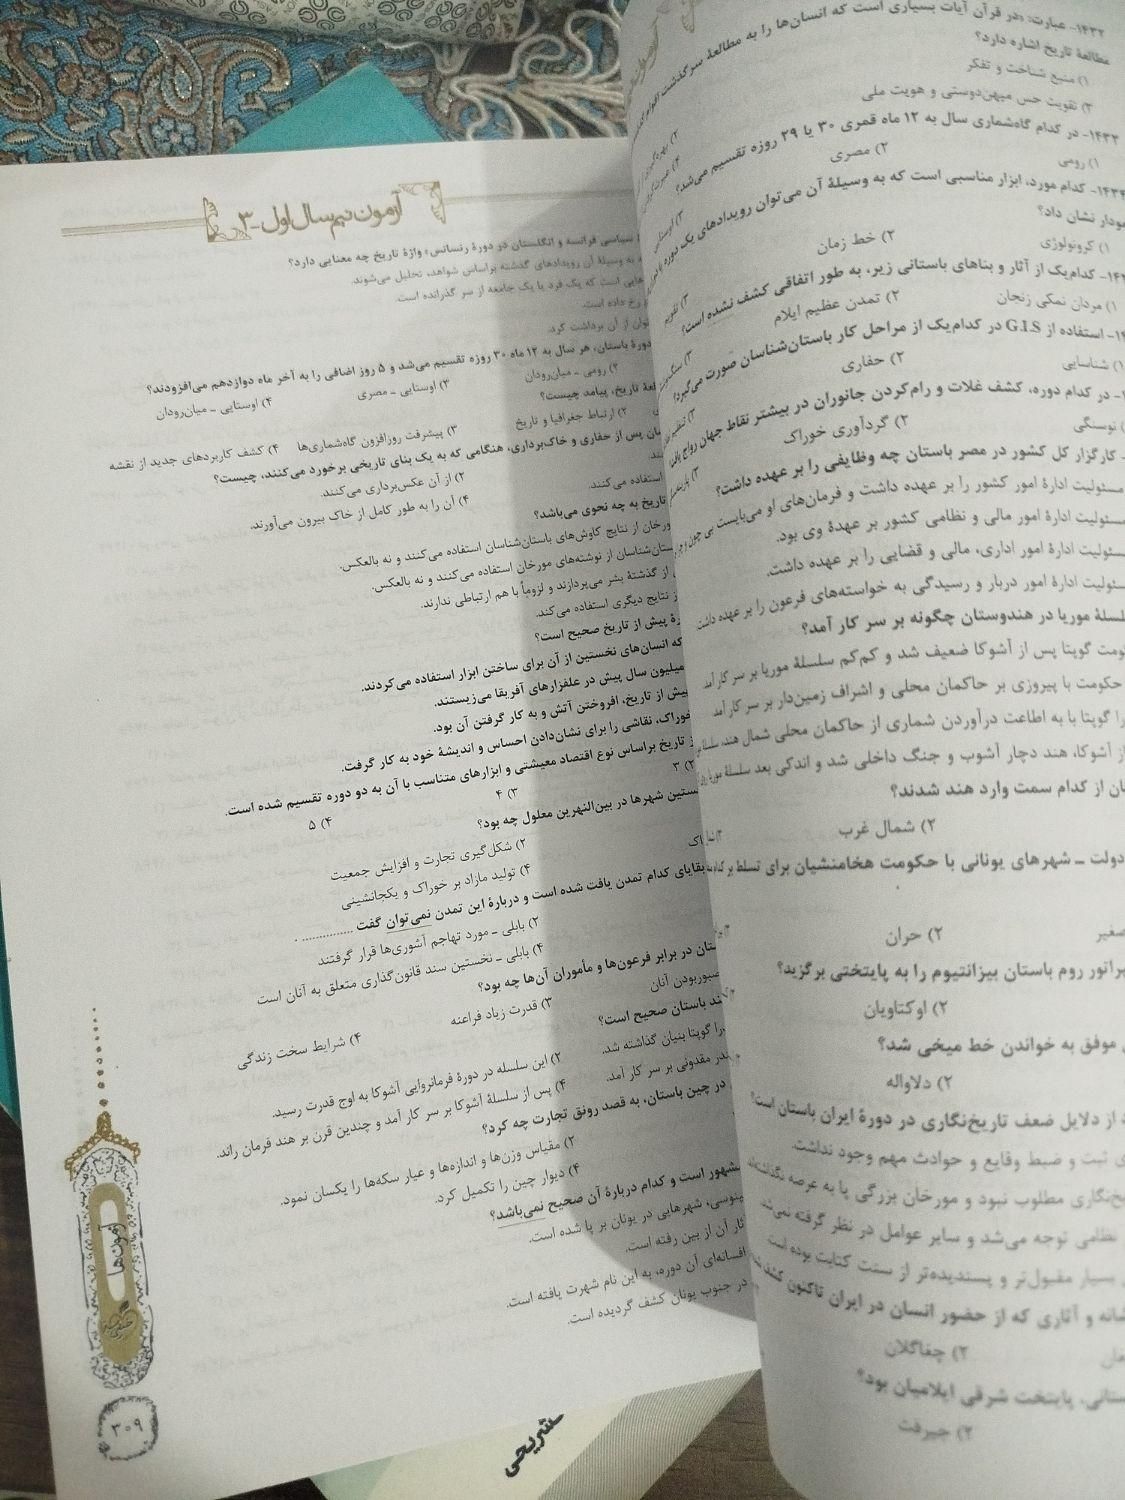 ۱۴۳۲- عبارت: «در قرآن آیات بسیاری است که انسان‌ها را به مطالعهٔ سرگذشت اقوام
مطالعهٔ تاریخ اشاره دارد؟
۱) منبع شناخت و تفکر
۳) تقویت حس میهن‌دوستی و هویت ملی
۱۴۳۳- در کدام گاه‌شماری سال به ۱۲ ماه قمری ۳۰ یا ۲۹ روزه تقسیم می‌شد؟
۱) رومی
۲) مصری
۳) اوستایی
۱۴۳۴- کدام مورد، ابزار مناسبی است که به وسیلهٔ آن می‌توان رویدادهای یک دوره
نمودار نشان داد؟
۱) کرونولوژی
۲) خط زمان
۳) تقویم
کدام‌یک از آثار و بناهای باستانی زیر، به طور اتفاقی کشف نشده است؟
۱) مردان نمکی زنجان
۲) تمدن عظیم ایلام
استفاده از G.I.S در کدام‌یک از مراحل کار باستان‌شناسان صورت می‌گیرد؟
۱) شناسایی
۲) حفاری
در کدام دوره، کشف غلات و رام‌کردن جانوران در بیشتر نقاط جهان رواج یافت
نوسنگی
۲) گردآوری خوراک
کارگزار کل کشور در مصر باستان چه وظایفی را بر عهده داشت؟
مسئولیت ادارهٔ امور کشور را بر عهده داشت و فرمان‌های او می‌بایست بی چون و چرا
مسئولیت ادارهٔ امور مالی و نظامی کشور بر عهدهٔ وی بود.
مسئولیت ادارهٔ امور اداری، مالی و قضایی را بر عهده داشت.
مسئولیت ادارهٔ امور دربار و رسیدگی به خواسته‌های فرعون را بر عهده داشت
سلسلهٔ موریا در هندوستان چگونه بر سر کار آمد؟
حکومت گوپتا پس از آشوکا ضعیف شد و کم‌کم سلسلهٔ موریا بر سر کار آمد
حکومت با پیروزی بر حاکمان محلی و اشراف زمین‌دار بر سر کار آمد
را گوپتا با به اطاعت درآوردن شماری از حاکمان محلی شمال هند،
از آشوکا، هند دچار آشوب و جنگ داخلی شد و اندکی بعد سلسلهٔ موریا
از کدام سمت وارد هند شدند؟
۲) شمال غرب
دولت ـ شهرهای یونانی با حکومت هخامنشیان برای تسلط بر
صغیر
۲) حران
روم باستان بیزانتیوم را به پایتختی برگزید؟
۲) اوکتاویان
موفق به خواندن خط میخی شد؟
۲) دلاواله
از دلایل ضعف تاریخ‌نگاری در دورهٔ ایران باستان است؟
ثبت و ضبط وقایع و حوادث مهم وجود نداشت.
مطلوب نبود و مورخان بزرگی پا به عرصه نگذاشته‌اند
نظامی توجه می‌شد و سایر عوامل در نظر گرفته نمی‌شد
بسیار مقبول‌تر و پسندیده‌تر از سنت کتابت بوده است
و آثاری که از حضور انسان در ایران تاکنون کشف
۲) چغاگلان
پایتخت شرقی ایلامیان بود؟
۲) جیرفت
آزمون نیم‌سال اول-۳
سیاسی فرانسه و انگلستان در دورهٔ رنسانس» واژهٔ تاریخ چه معنایی دارد؟
به وسیلهٔ آن رویدادهای گذشته براساس شواهد، تحلیل می‌شوند.
است که یک فرد یا یک جامعه از سر گذرانده است.
رخ داده است.
از آن برداشت کرد.
دورهٔ باستان، هر سال به ۱۲ ماه ۳۰ روزه تقسیم می‌شد و ۵ روز اضافی را به آخر ماه دوازدهم می‌افزودند؟
۲) رومی ـ میان‌رودان
۳) اوستایی ـ مصری
۴) اوستایی ـ میان‌رودان
تاریخ، پیامد چیست؟
۲) ارتباط جغرافیا و تاریخ
۳) پیشرفت روزافزون گاه‌شماری‌ها
۴) کشف کاربردهای جدید از نقشه
پس از حفاری و خاک‌برداری، هنگامی که به یک بنای تاریخی برخورد می‌کنند، چیست؟
۲) از آن عکس‌برداری می‌کنند.
استفاده می‌کنند.
۴) آن را به طور کامل از خاک بیرون می‌آورند.
تاریخ به چه نحوی می‌باشد؟
از نتایج کاوش‌های باستان‌شناسان استفاده می‌کنند و نه بالعکس.
از نوشته‌های مورخان استفاده می‌کنند و نه بالعکس.
از گذشتهٔ بشر می‌پردازند و لزوماً با هم ارتباطی ندارند.
از نتایج دیگری استفاده می‌کند.
پیش از تاریخ صحیح است؟
که انسان‌های نخستین از آن برای ساختن ابزار استفاده می‌کردند.
میلیون سال پیش در علفزارهای آفریقا می‌زیستند.
پیش از تاریخ، افروختن آتش و به کار گرفتن آن بود.
خوراک، نقاشی را برای نشان‌دادن احساس و اندیشهٔ خود به کار گرفت.
از تاریخ براساس نوع اقتصاد معیشتی و ابزارهای متناسب با آن به دو دوره تقسیم شده است.
۲) ۳
۳) ۴
۴) ۵
نخستین شهرها در بین‌النهرین معلول چه بود؟
۲) شکل‌گیری تجارت و افزایش جمعیت
۴) تولید مازاد بر خوراک و یکجانشینی
بقایای کدام تمدن یافت شده است و دربارهٔ این تمدن نمی‌توان گفت ............... .
۲) بابلی ـ مورد تهاجم آشوری‌ها قرار گرفتند
۴) بابلی ـ نخستین سند قانون‌گذاری متعلق به آنان است
در برابر فرعون‌ها و مأموران آن‌ها چه بود؟
صبوربودن آنان
۳) قدرت زیاد فراعنه
۴) شرایط سخت زندگی
هند باستان صحیح است؟
گوپتا بنیان گذاشته شد.
۲) این سلسله در دورهٔ فرمانروایی آشوکا به اوج قدرت رسید.
مقدونی بر سر کار آمد.
۴) پس از سلسلهٔ آشوکا بر سر کار آمد و چندین قرن بر هند فرمان راند.
در چین باستان، به قصد رونق تجارت چه کرد؟
۲) مقیاس وزن‌ها و اندازه‌ها و عیار سکه‌ها را یکسان نمود.
۴) دیوار چین را تکمیل کرد.
مشهور است و کدام دربارهٔ آن صحیح نمی‌باشد؟
شهرهایی در یونان بر پا شده است.
آن از بین رفته است.
افسانه‌ای آن دوره، به این نام شهرت یافته است.
در جنوب یونان کشف گردیده است.
آزمون‌ها
۳۰۹
تشریحی